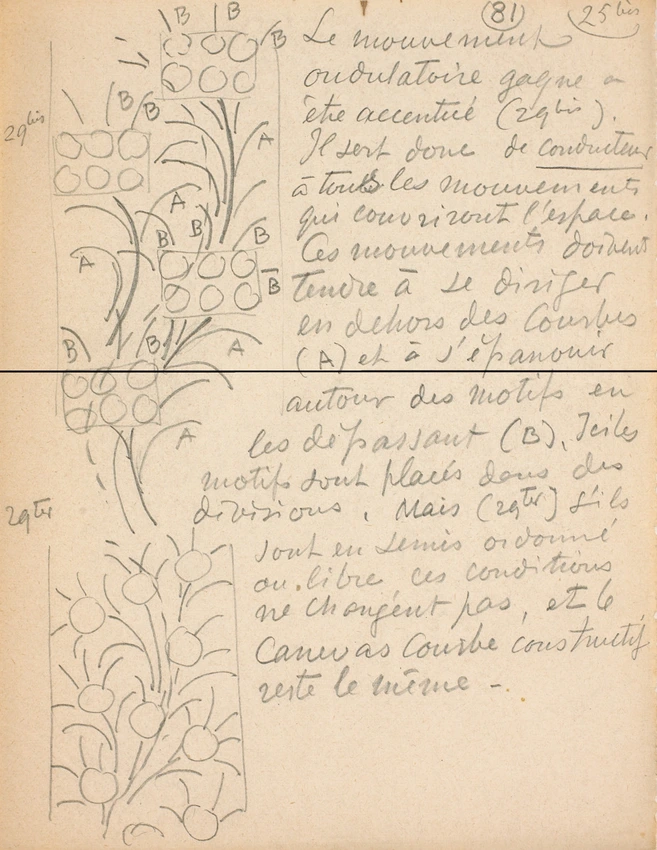 (81) 25 bis
B B B
Le mouvement
ondulatoire gagne a
être accentué (29 bis).
Il sert donc de conducteur
à tous les mouvements
qui couvriront l'espace.
Ces mouvements doivent
tendre à se diriger
en dehors des Courbes
(A) et à s'épanouir
autour des motifs en
les dépassant (B). Ici les
motifs sont placés dans des
divisions. Mais (29 ter) s'ils
sont en semis ordonné
ou libre ces conditions
ne changent pas, et le
Canevas Courbe constructif
reste le même -
29 bis
B B
A
A
B B B
A
B
B B
A
A
29 ter